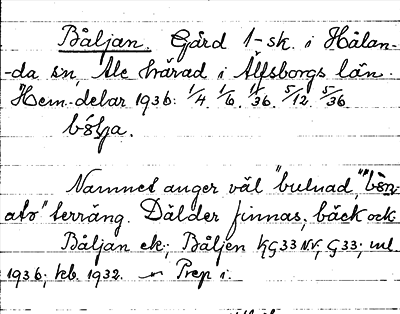 Båljan. Gård 1-sk. i Hålan-
-da sn, Ale härad i Älfsborgs län.
Hem. delar 1936: 1/4. 1/6. 11/36. 5/12. 5/36.
bólja.
Namnet anger väl "bulnad",
ato" terräng. Dälder finnas, bäck ock
Båljan ek; Båljen KG33 NV, G33; ml
1936; kb. 1932. Prep i.